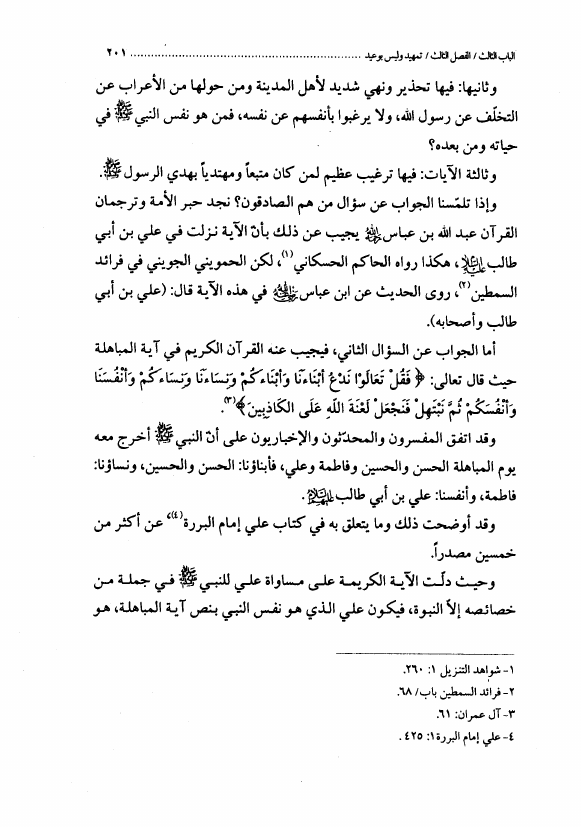 الباب الثالث/ الفصل الثالث/ تمهيد وليس بوعيد ........................................................ ٢٠١
وثانيها: فيها تحذير ونهي شديد لأهل المدينة ومن حولها من الأعراب عن
التخلّف عن رسول الله، ولا يرغبوا بأنفسهم عن نفسه، فمن هو نفس النبي ﷺ في
حياته ومن بعده؟
وثالثة الآيات: فيها ترغيب عظيم لمن كان متبعاً ومهتدياً بهدي الرسول ﷺ.
وإذا تلمّسنا الجواب عن سؤال من هم الصادقون؟ نجد حبر الأمة وترجمان
القرآن عبد الله بن عباس يجيب عن ذلك بأنّ الآية نزلت في علي بن أبي
طالب، هكذا رواه الحاكم الحسكاني(١)، لكن الحمويني الجويني في فرائد
السمطين(٢)، روى الحديث عن ابن عباس في هذه الآية قال: (علي بن أبي
طالب وأصحابه).
أما الجواب عن السؤال الثاني، فيجيب عنه القرآن الكريم في آية المباهلة
حيث قال تعالى: ﴿فَقُلْ تَعَالَوْا نَدْعُ أَبْنَاءَنَا وَأَبْنَاءَكُمْ وَنِسَاءَنَا وَنِسَاءَكُمْ وَأَنْفُسَنَا
وَأَنْفُسَكُمْ ثُمَّ نَبْتَهِلْ فَنَجْعَلْ لَعْنَةَ اللَّهِ عَلَى الْكَاذِبِينَ﴾(٣).
وقد اتفق المفسرون والمحدّثون والإخباريون على أنّ النبي ﷺ أخرج معه
يوم المباهلة الحسن والحسين وفاطمة وعلي، فأبناؤنا: الحسن والحسين، ونساؤنا:
فاطمة، وأنفسنا: علي بن أبي طالب.
وقد أوضحت ذلك وما يتعلق به في كتاب علي إمام البررة(٤)، عن أكثر من
خمسين مصدراً.
وحيث دلّت الآية الكريمة على مساواة علي للنبي ﷺ في جملة من
خصائصه إلاّ النبوة، فيكون علي الذي هو نفس النبي بنص آية المباهلة، هو
١- شواهد التنزيل ١: ٢٦٠.
٢- فرائد السمطين باب/ ٦٨.
٣- آل عمران: ٦١.
٤- علي إمام البررة١: ٤٢٥.